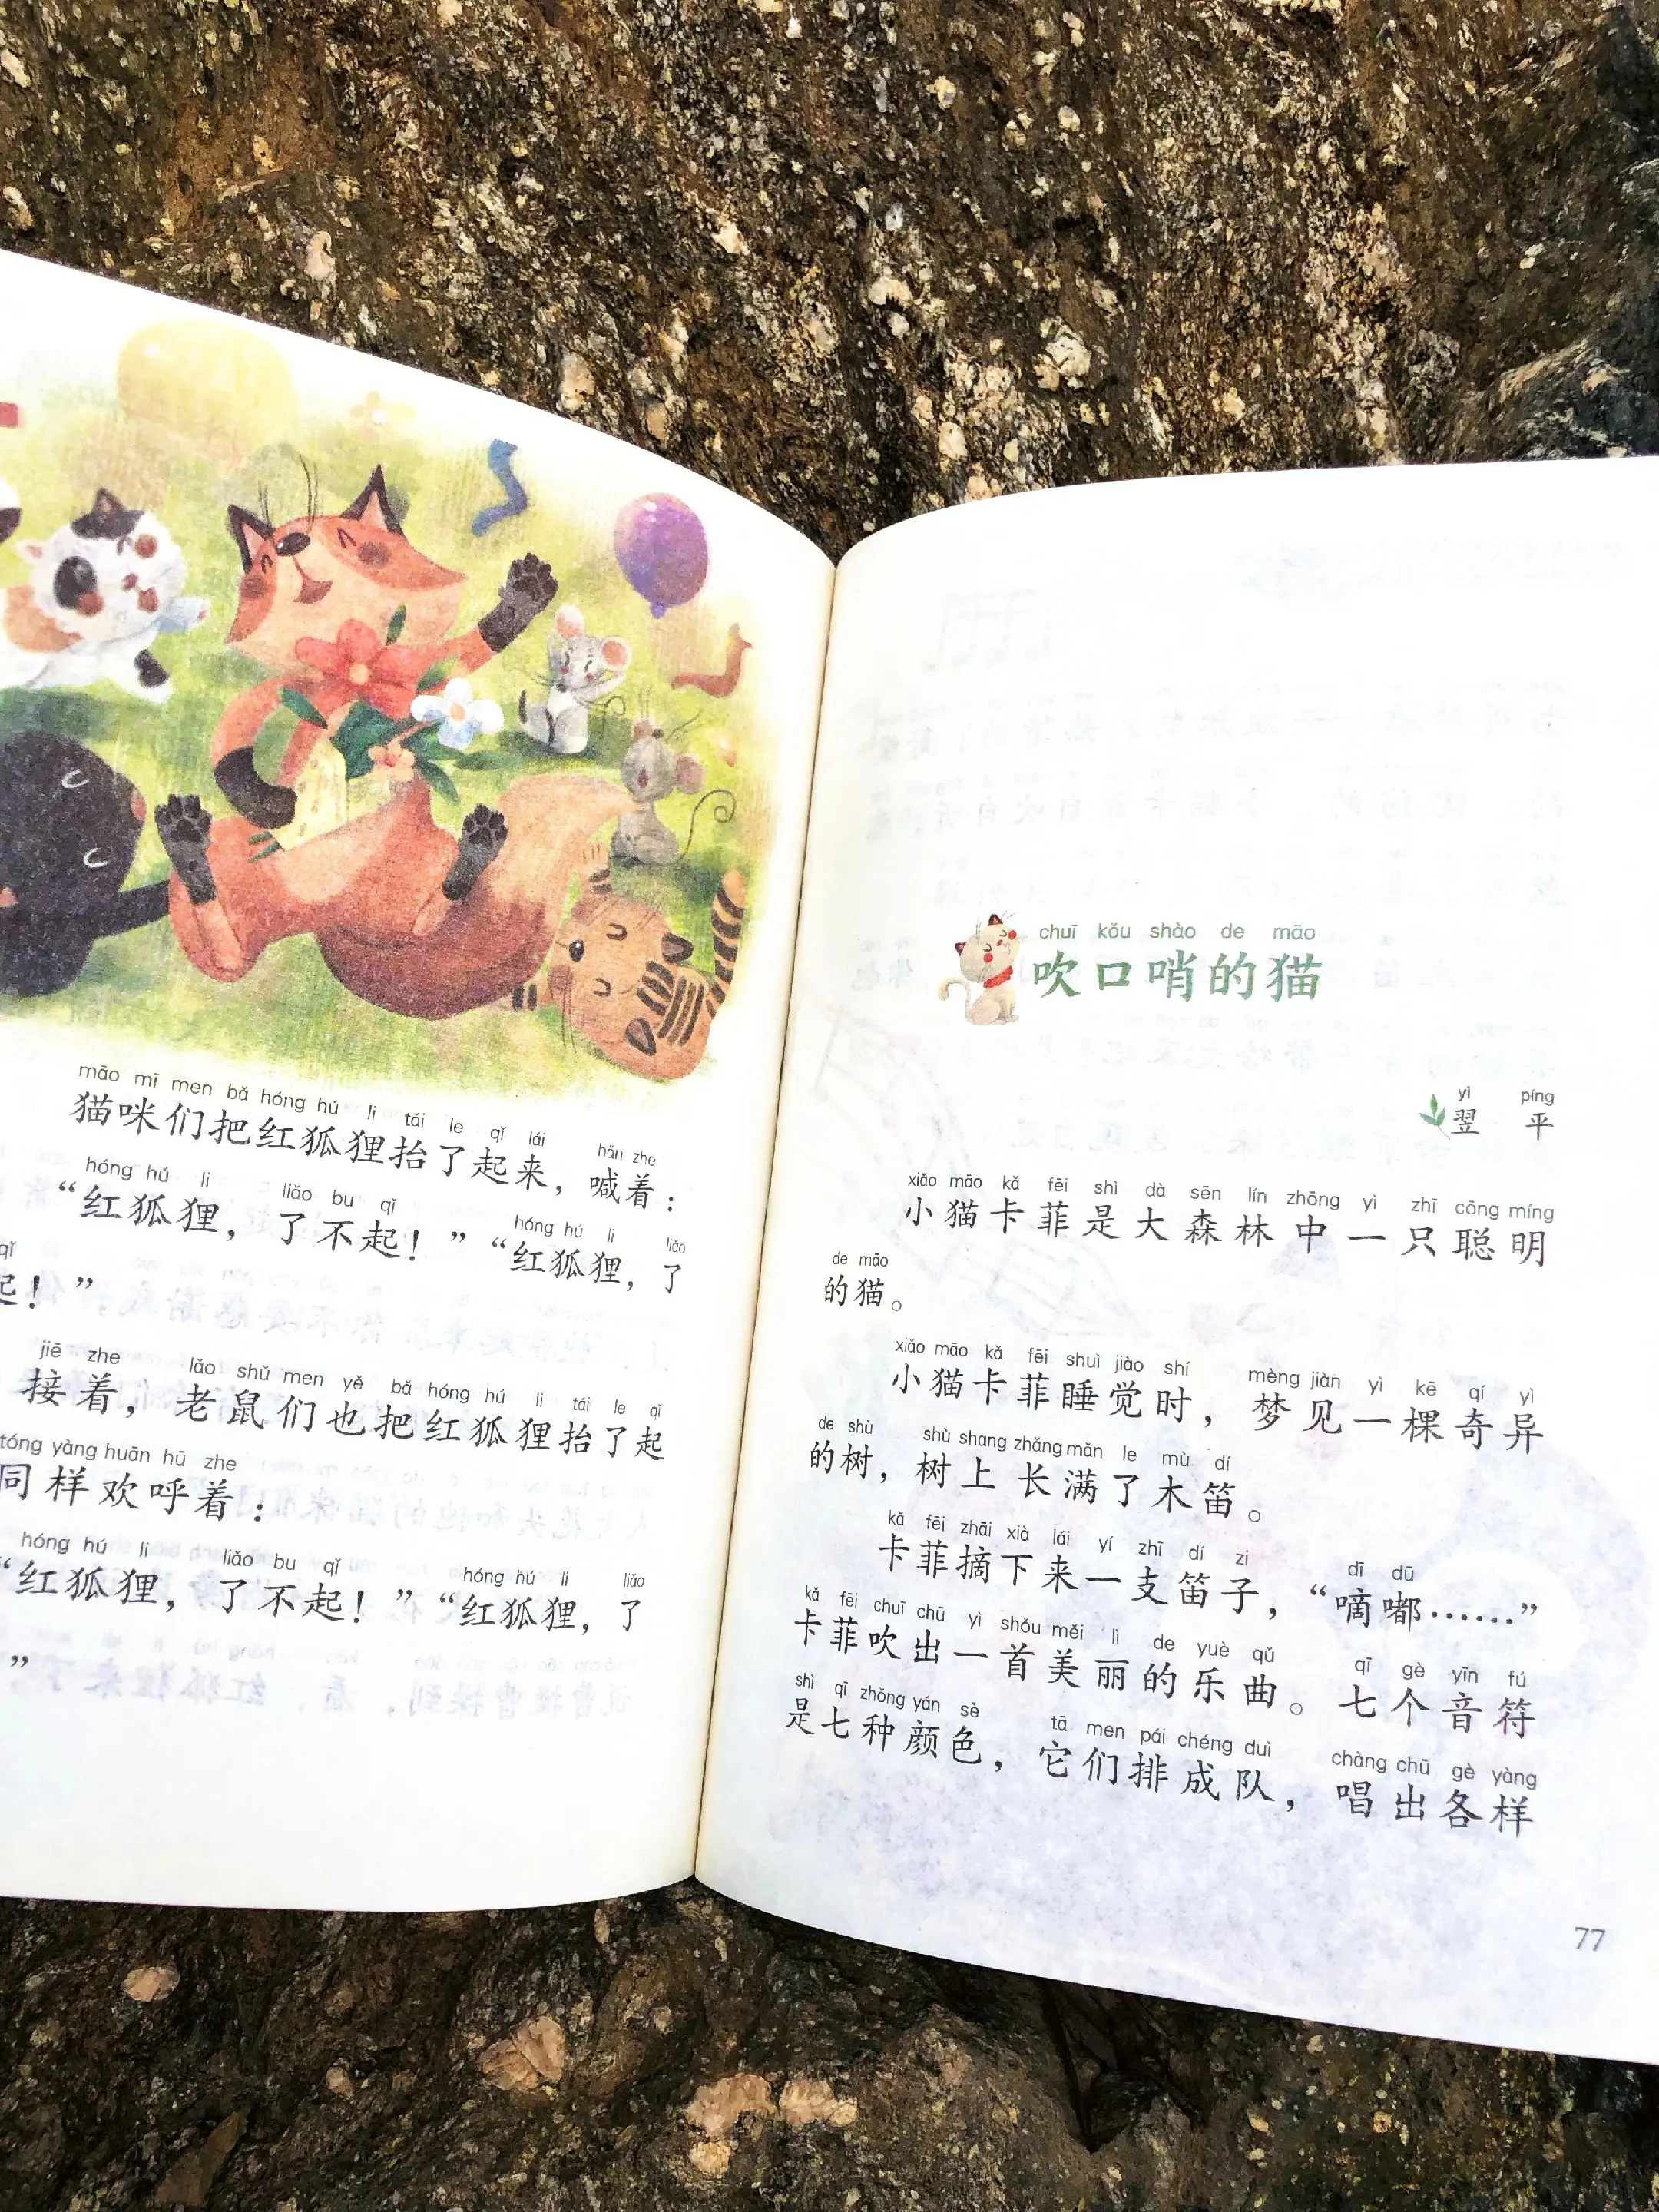 māo mī men bǎ hóng hú li tái le qǐ lái hǎn zhe
猫咪们把红狐狸抬了起来，喊着：
hóng hú li liǎo bu qǐ hóng hú li liǎo
“红狐狸，了不起！”“红狐狸，了
qǐ
起！”
jiē zhe lǎo shǔ men yě bǎ hóng hú li tái le qǐ
接着，老鼠们也把红狐狸抬了起
tóng yàng huān hū zhe
同样欢呼着：
hóng hú li liǎo bu qǐ hóng hú li liǎo
“红狐狸，了不起！”“红狐狸，了
”
chuī kǒu shào de māo
吹口哨的猫
yì píng
翌平
xiǎo māo kǎ fēi shì dà sēn lín zhōng yì zhī cōng míng
小猫卡菲是大森林中一只聪明
de māo
的猫。
xiǎo māo kǎ fēi shuì jiào shí mèng jiàn yì kē qí yì
小猫卡菲睡觉时，梦见一棵奇异
de shù shù shang zhǎng mǎn le mù dí
的树，树上长满了木笛。
kǎ fēi zhāi xià lái yí zhī dí zi dī dū
卡菲摘下来一支笛子，“嘀嘟……”
kǎ fēi chuī chū yì shǒu měi lì de yuè qǔ qī gè yīn fú
卡菲吹出一首美丽的乐曲。七个音符
shì qī zhǒng yán sè tā men pái chéng duì chàng chū gè yàng
是七种颜色，它们排成队，唱出各样
77